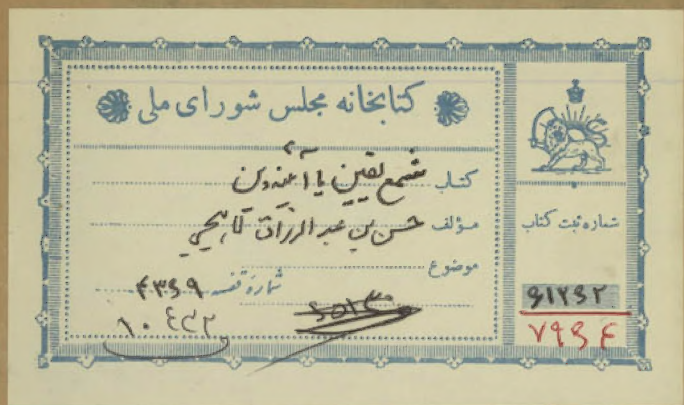 کتابخانه مجلس شورای ملی
کتاب شمع یقین یا آئینه دین
مؤلف حسن بن عبد الرزاق لاهیجی
موضوع
شماره قفسه ۴۳۶۹
۱۰۴۲۲
شماره ثبت کتاب
۶۱۲۶۲
۷۹۶۴